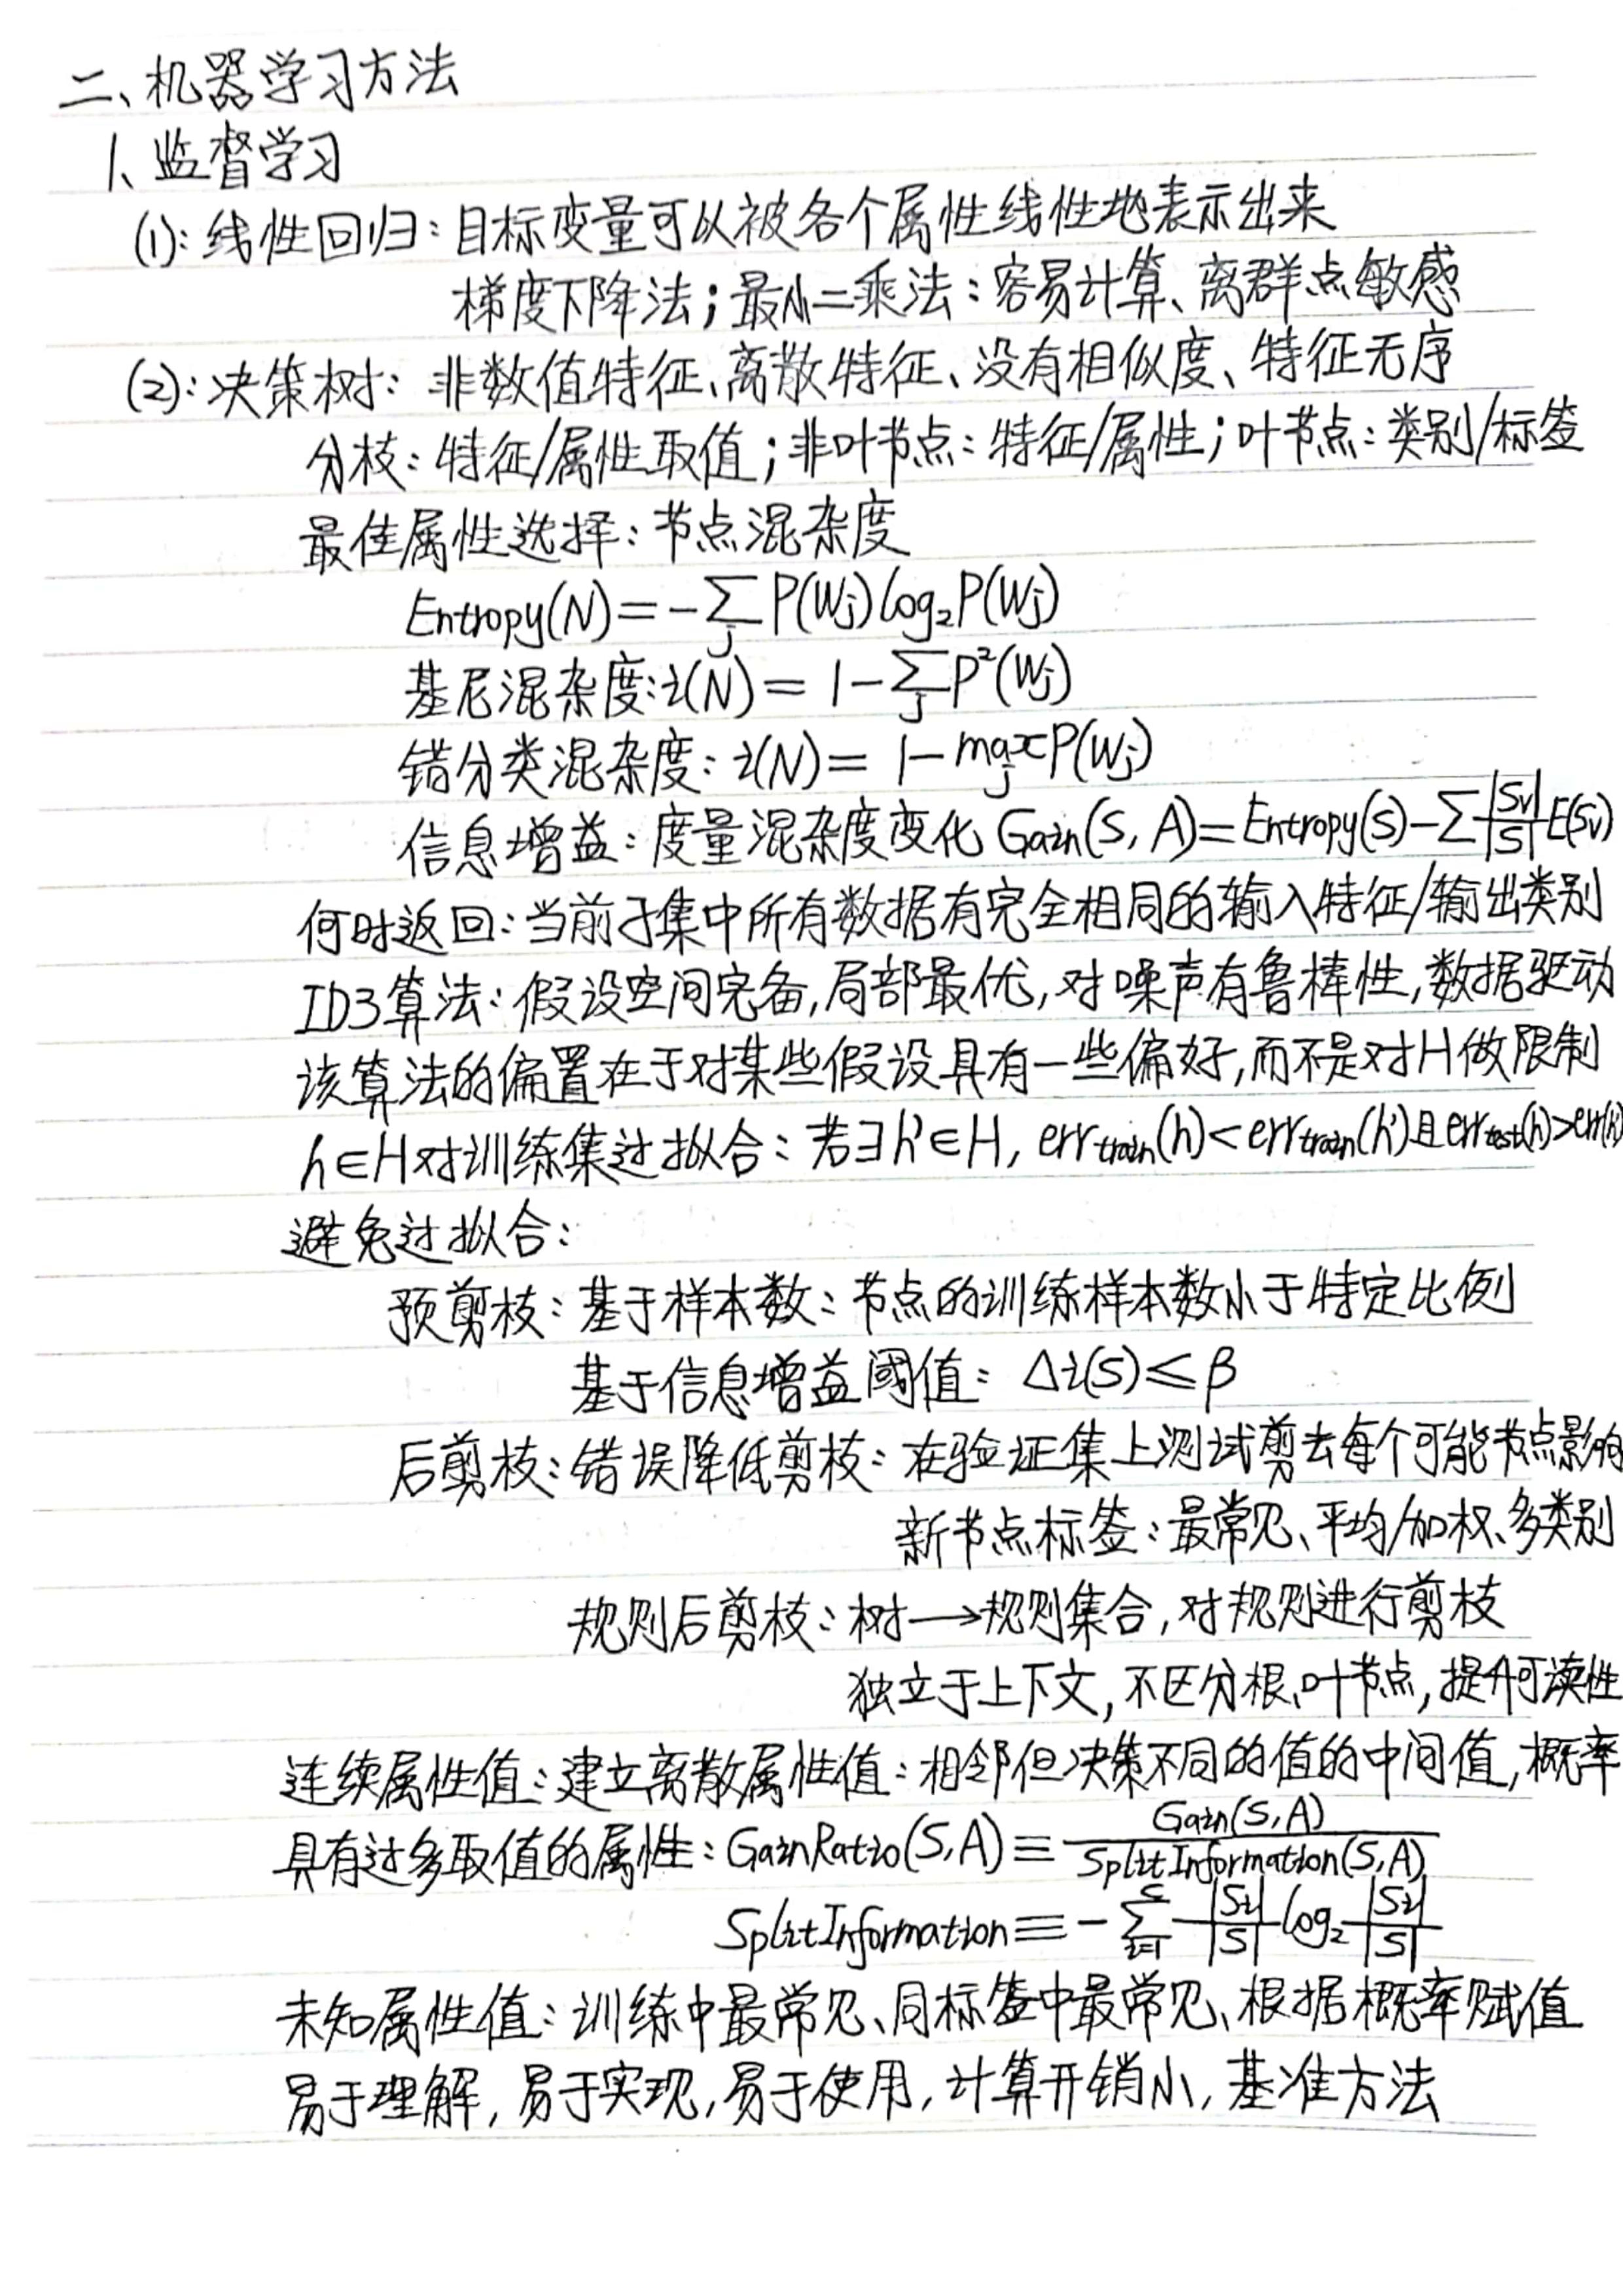 二、机器学习方法
1、监督学习
(1): 线性回归: 目标变量可以被各个属性线性地表示出来
梯度下降法; 最小二乘法: 容易计算、离群点敏感
(2): 决策树: 非数值特征、离散特征、没有相似度、特征无序
分枝: 特征/属性取值; 非叶节点: 特征/属性; 叶节点: 类别/标签
最佳属性选择: 节点混杂度
Entropy(N) = -∑_j P(Wj) log₂P(Wj)
基尼混杂度: i(N) = 1-∑_j P²(Wj)
错分类混杂度: i(N) = 1-max_j P(Wj)
信息增益: 度量混杂度变化 Gain(S, A)=Entropy(S)-∑|Sv|/|S| E(Sv)
何时返回: 当前子集中所有数据有完全相同的输入特征/输出类别
ID3算法: 假设空间完备, 局部最优, 对噪声有鲁棒性, 数据驱动
该算法的偏置在于对某些假设具有一些偏好, 而不是对H做限制
h∈H对训练集过拟合: 若∃h'∈H, err_train(h)<err_train(h')且err_test(h)>err(h')
避免过拟合:
预剪枝: 基于样本数: 节点的训练样本数小于特定比例
基于信息增益阈值: Δi(S)≤β
后剪枝: 错误降低剪枝: 在验证集上测试剪去每个可能节点影响
新节点标签: 最常见、平均/加权、多类别
规则后剪枝: 树→规则集合, 对规则进行剪枝
独立于上下文, 不区分根、叶节点, 提升可读性
连续属性值: 建立离散属性值: 相邻但决策不同的值的中间值, 概率
具有过多取值的属性: GainRatio(S,A) ≡ Gain(S,A)/SplitInformation(S,A)
SplitInformation ≡ -∑_{i=1}^{c} |Si|/|S| log₂ |Si|/|S|
未知属性值: 训练中最常见、同标签中最常见、根据概率赋值
易于理解, 易于实现, 易于使用, 计算开销小, 基准方法